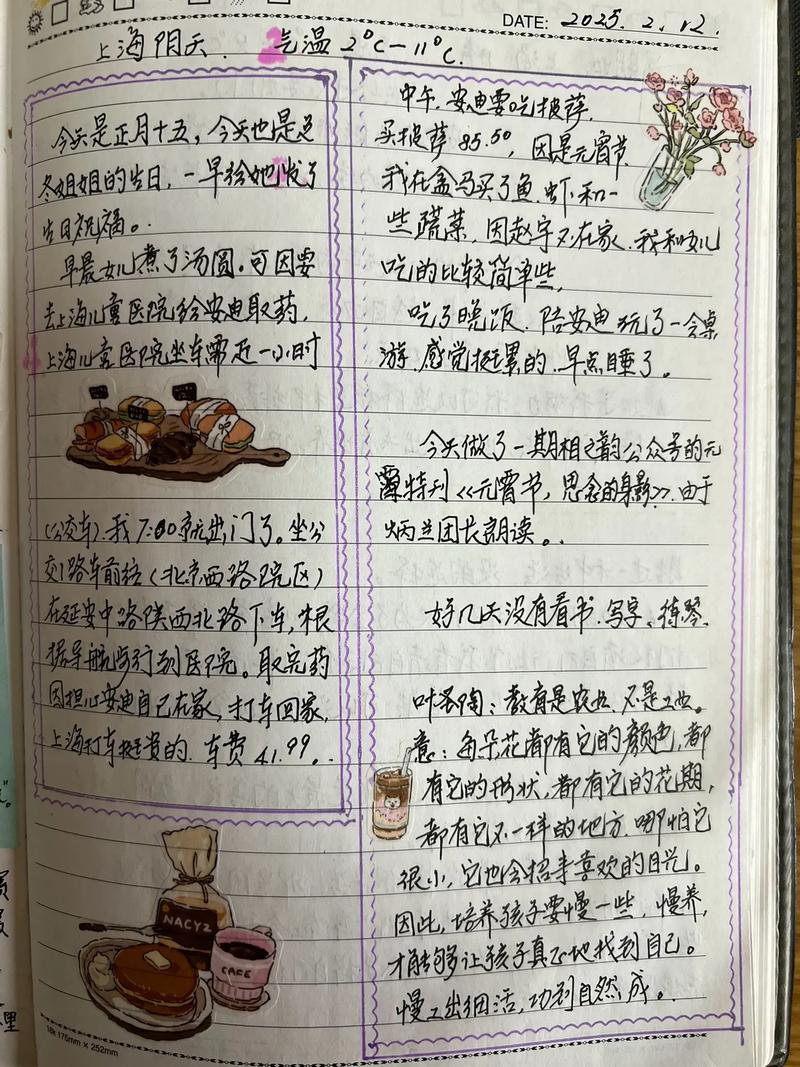 DATE: 2025. 2. 12.
上海阴天. 气温 2℃-11℃.
今天是正月十五,今天也是
冬姐姐的生日,一早给她发了
生日祝福。
早晨女儿煮了汤圆。可因要
去上海儿童医院给安迪取药,
上海儿童医院坐车需近一小时
(公交车).我7:00就出门了。坐公
交1路车前往(北京西路院区)
在延安中路陕西北路下车,根
据导航步行到医院。取完药
因担心安迪自己在家,打车回家,
上海打车挺贵的.车费41.99。
NACYZ
CAFE
18k 175mm × 252mm
中午,安迪要吃披萨,
买披萨85.50,因是元宵节
我在盒马买了鱼、虾和一
些蔬菜,因赵宇不在家.我和女儿
吃的比较简单些,
吃了晚饭.陪安迪玩了一会桌
游.感觉挺累的.早点睡了。
今天做了一期相之韵公众号的元
宵特刊《元宵节,思念的身影》.由于
炳兰团长朗读。
好几天没有看书.写字、练琴、
叶圣陶:教育是农业.不是工业。
意:每朵花都有它的颜色,都
有它的形状,都有它的花期,
都有它不一样的地方.哪怕它
很小,它也会招来喜欢的目光。
因此,培养孩子要慢一些,慢养,
才能够让孩子真正地找到自己。
慢工出细活,功到自然成。